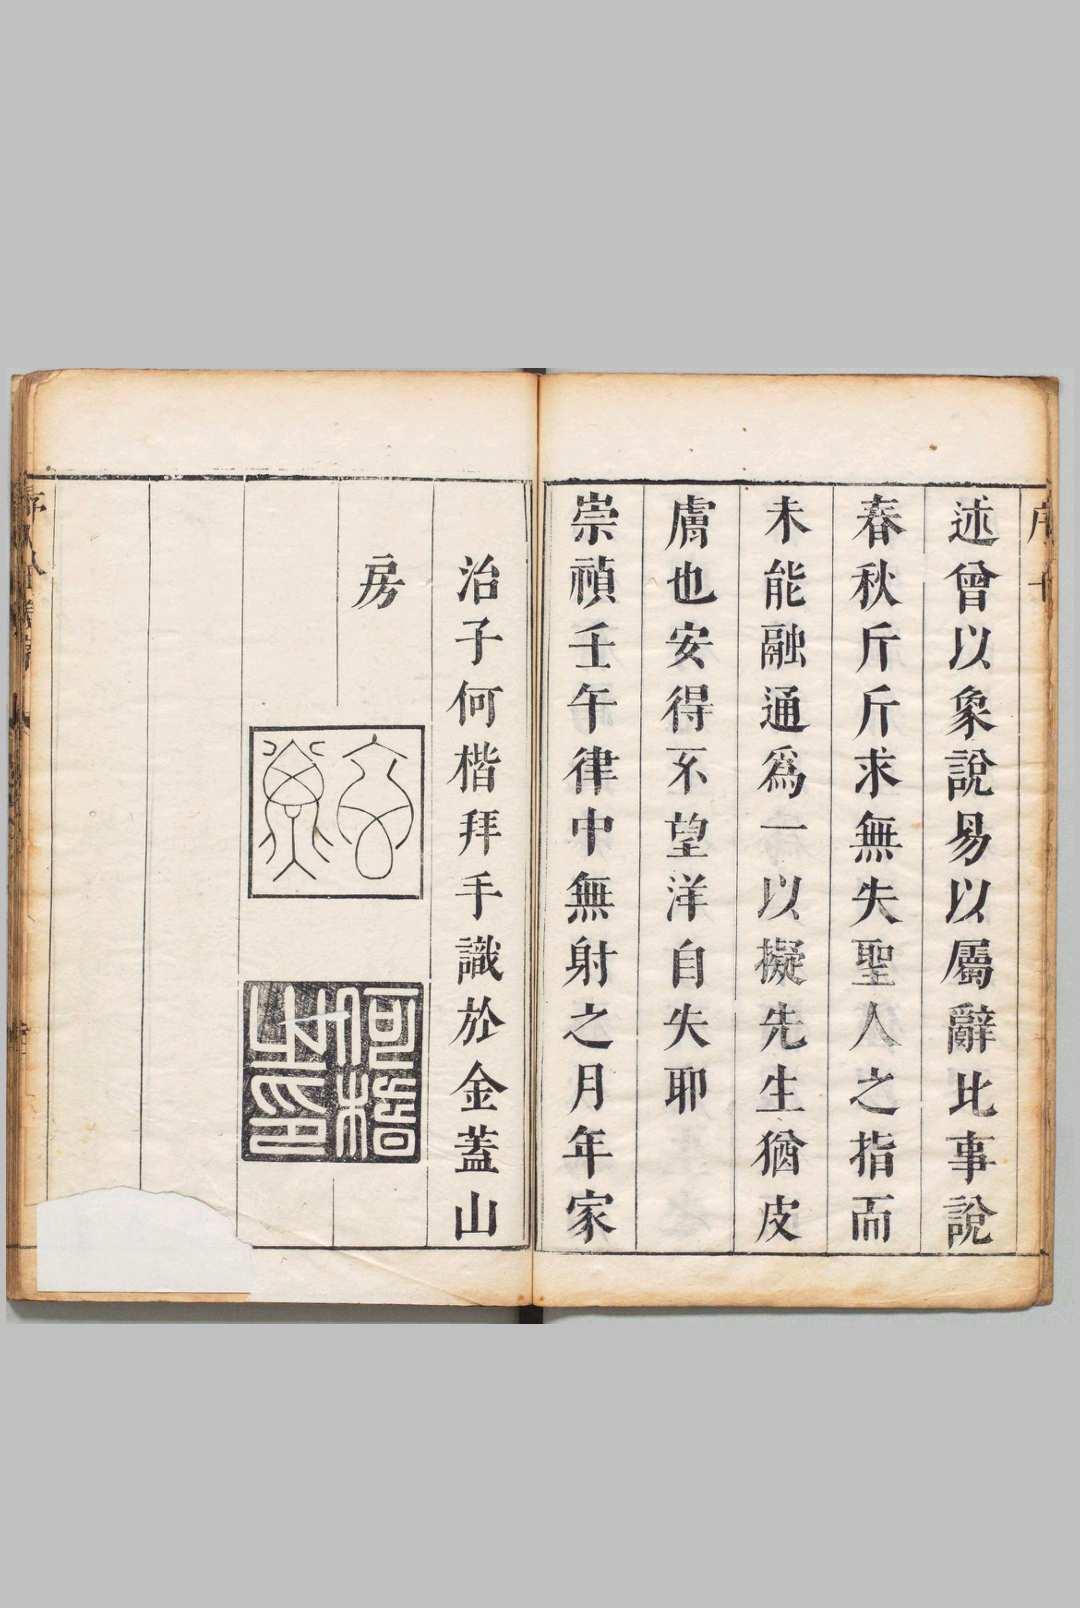 述曾以象說易以屬辭比事說
春秋斤斤求無失聖人之指而
未能融通爲一以擬先生猶皮
膚也安得不望洋自失耶
崇禎壬午律中無射之月年家
治子何楷拜手識於金蓋山
房
何楷
之印